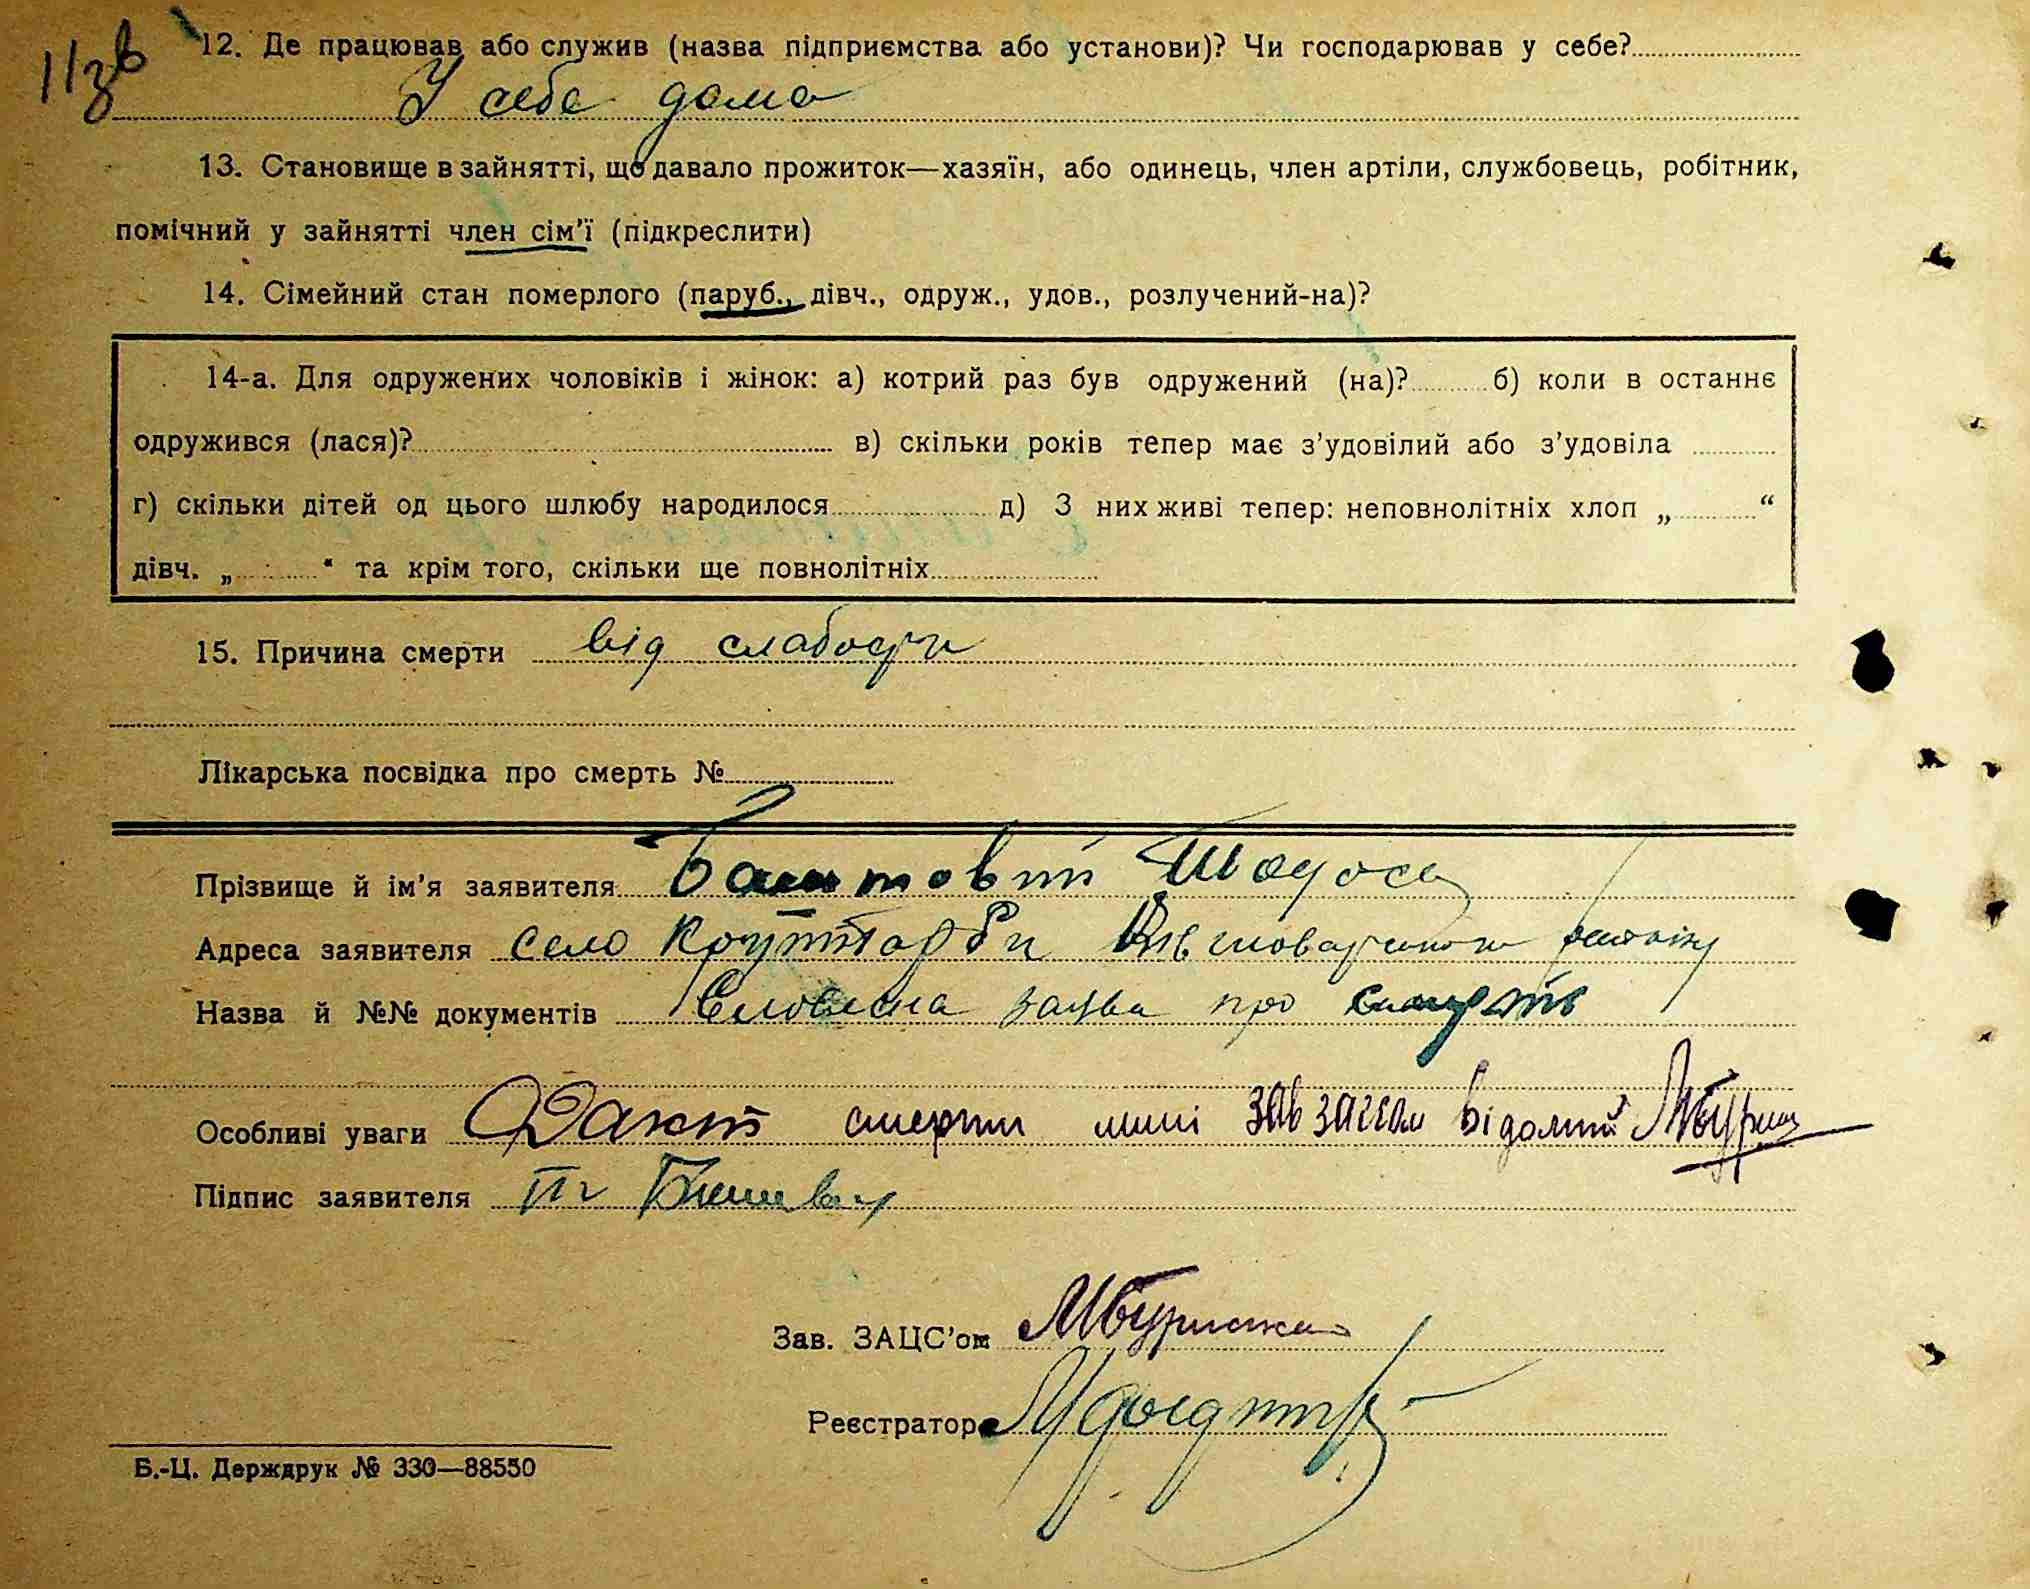 113в
12. Де працював або служив (назва підприємства або установи)? Чи господарював у себе?
У себе дома
13. Становище в зайнятті, що давало прожиток—хазяїн, або одинець, член артіли, службовець, робітник,
помічний у зайнятті член сім’ї (підкреслити)
14. Сімейний стан померлого (паруб., дівч., одруж., удов., розлучений-на)?
14-а. Для одружених чоловіків і жінок: а) котрий раз був одружений (на)? б) коли в останнє
одружився (лася)? в) скільки років тепер має з’удовілий або з’удовіла
г) скільки дітей од цього шлюбу народилося д) З них живі тепер: неповнолітніх хлоп „ “
дівч. „ “ та крім того, скільки ще повнолітніх
15. Причина смерти від слабости
Лікарська посвідка про смерть №
Прізвище й ім’я заявителя Баштовий Тодос
Адреса заявителя село району
Назва й №№ документів Словесна заява про смерть
Особливі уваги Факт смерти мині зав загсом відомий
Підпис заявителя
Зав. ЗАЦС’ом
Реєстратор
Б.-Ц. Держдрук № 330—88550